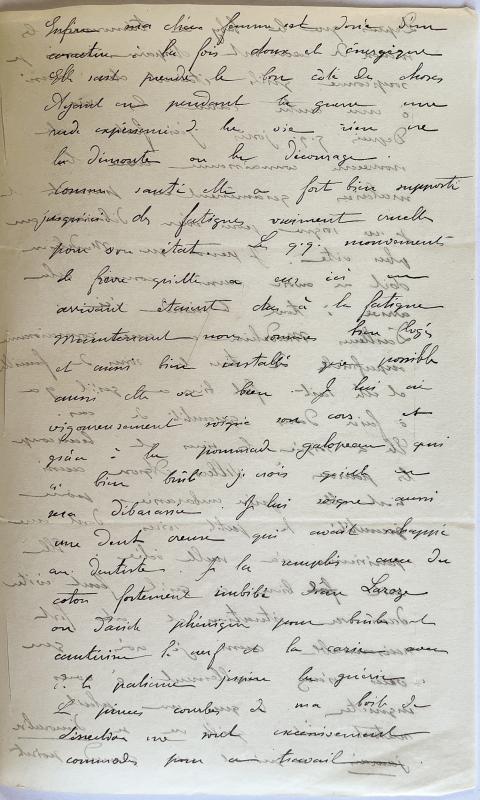 Enfin ma chère femme est douée d'un
caractère à la fois doux et énergique
Elle sait prendre le bon côté des choses
Ayant eu pendant la guerre une
rude expérience de la vie rien ne
la démonte ou la décourage.
Comme santé elle a fort bien supporté
jusqu'ici des fatigues vraiment cruelles
pour son état. Les qq. mouvements
de fièvre qu'elle a eus ici en
arrivant étaient dus à la fatigue
maintenant nous sommes bien logés
et aussi bien installés que possible
aussi elle va bien. Je lui ai
vigoureusement soigné son cors et
grâce à la pommade galopeau qui
a bien brûlé je crois qu'elle en
sera débarassée. Je lui soigne aussi
une dent creuse qui avait échappé
au dentiste. Je la remplis avec du
coton fortement imbibé d'eau Laroze
ou d'acide phénique pour brûler et
cautériser le nerf et la carie avec
de la patience j'espère la guérir
Les pinces courbes de ma boîte de
dissection me sont excessivement
commodes pour ce travail.